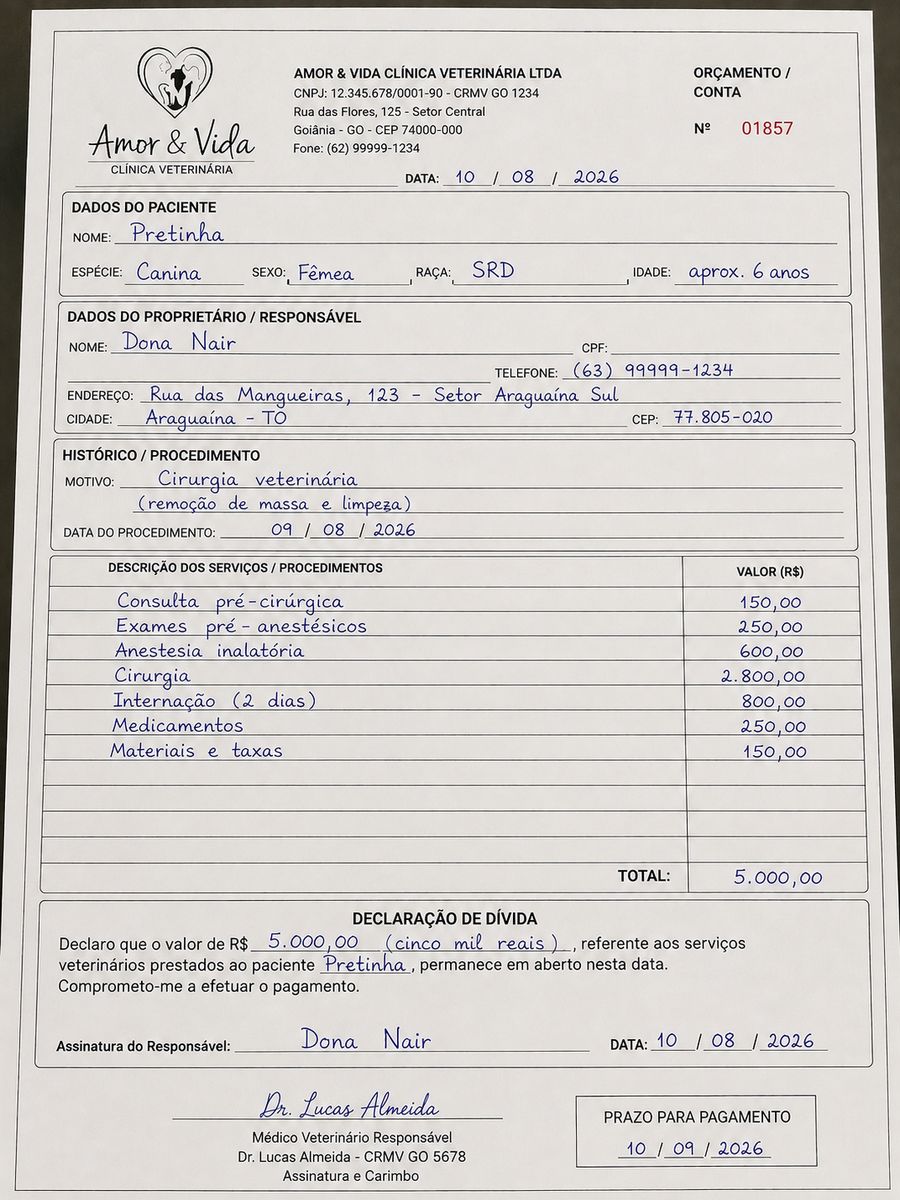 Amor & Vida
CLÍNICA VETERINÁRIA
AMOR & VIDA CLÍNICA VETERINÁRIA LTDA
CNPJ: 12.345.678/0001-90 - CRMV GO 1234
Rua das Flores, 125 - Setor Central
Goiânia - GO - CEP 74000-000
Fone: (62) 99999-1234
ORÇAMENTO /
CONTA
Nº 01857
DATA: 10 / 08 / 2026
DADOS DO PACIENTE
NOME: Pretinha
ESPÉCIE: Canina SEXO: Fêmea RAÇA: SRD IDADE: aprox. 6 anos
DADOS DO PROPRIETÁRIO / RESPONSÁVEL
NOME: Dona Nair CPF:
TELEFONE: (63) 99999-1234
ENDEREÇO: Rua das Mangueiras, 123 - Setor Araguaína Sul
CIDADE: Araguaína - TO CEP: 77.805-020
HISTÓRICO / PROCEDIMENTO
MOTIVO: Cirurgia veterinária
(remoção de massa e limpeza)
DATA DO PROCEDIMENTO: 09 / 08 / 2026
DESCRIÇÃO DOS SERVIÇOS / PROCEDIMENTOS VALOR (R$)
Consulta pré-cirúrgica 150,00
Exames pré-anestésicos 250,00
Anestesia inalatória 600,00
Cirurgia 2.800,00
Internação (2 dias) 800,00
Medicamentos 250,00
Materiais e taxas 150,00
TOTAL: 5.000,00
DECLARAÇÃO DE DÍVIDA
Declaro que o valor de R$ 5.000,00 (cinco mil reais), referente aos serviços
veterinários prestados ao paciente Pretinha, permanece em aberto nesta data.
Comprometo-me a efetuar o pagamento.
Assinatura do Responsável: Dona Nair DATA: 10 / 08 / 2026
Dr. Lucas Almeida
Médico Veterinário Responsável
Dr. Lucas Almeida - CRMV GO 5678
Assinatura e Carimbo
PRAZO PARA PAGAMENTO
10 / 09 / 2026